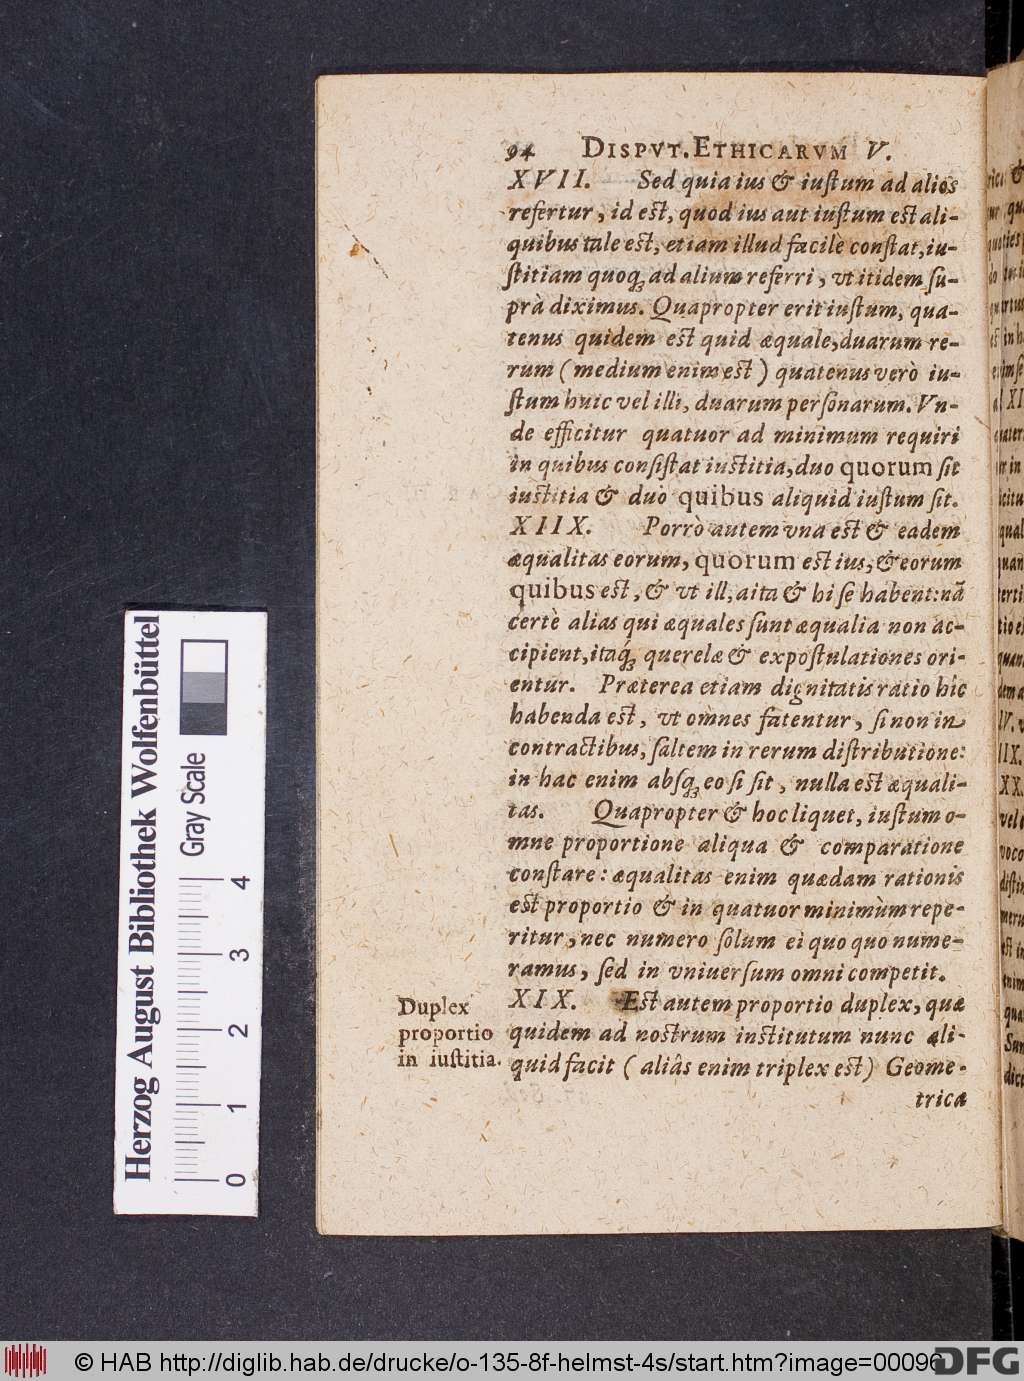 94 DISPVT. ETHICARVM V.
XVII. Sed quia ius & iuſtum ad alios
refertur, id eſt, quod ius aut iuſtum eſt ali-
quibus tale eſt, etiam illud facilè conſtat, iu-
ſtitiam quoq; ad alium referri, vt itidem ſu-
prà diximus. Quapropter erit iuſtum, qua-
tenus quidem eſt quid æquale, duarum re-
rum (medium enim eſt) quatenus verò iu-
ſtum huic vel illi, duarum perſonarum. Vn-
de efficitur quatuor ad minimum requiri
in quibus conſiſtat iuſtitia, duo quorum ſit
iuſtitia & duo quibus aliquid iuſtum ſit.
XIIX. Porrò autem vna eſt & eadem
æqualitas eorum, quorum eſt ius, & eorum
quibus eſt, & vt ill, aita & hi ſe habent: nã
certè alias qui æquales ſunt æqualia non ac-
cipient, itaq́; querelæ & expoſtulationes ori-
entur. Præterea etiam dignitatis ratio hîc
habenda eſt, vt omnes fatentur, ſi non in
contractibus, ſaltem in rerum diſtributione:
in hac enim abſq; eo ſi ſit, nulla eſt æquali-
tas. Quapropter & hoc liquet, iuſtum o-
mne proportione aliqua & comparatione
conſtare: æqualitas enim quædam rationis
eſt proportio & in quatuor minimùm repe-
ritur, nec numero ſolum ei quo quo nume-
ramus, ſed in vniuerſum omni competit.
XIX. Eſt autem proportio duplex, quæ
quidem ad noſtrum inſtitutum nunc ali-
quid facit (aliâs enim triplex eſt) Geome-
tricæ
Duplex
proportio
in iuſtitia.
Herzog August Bibliothek Wolfenbüttel
Gray Scale
0 1 2 3 4
© HAB http://diglib.hab.de/drucke/o-135-8f-helmst-4s/start.htm?image=00096
DFG